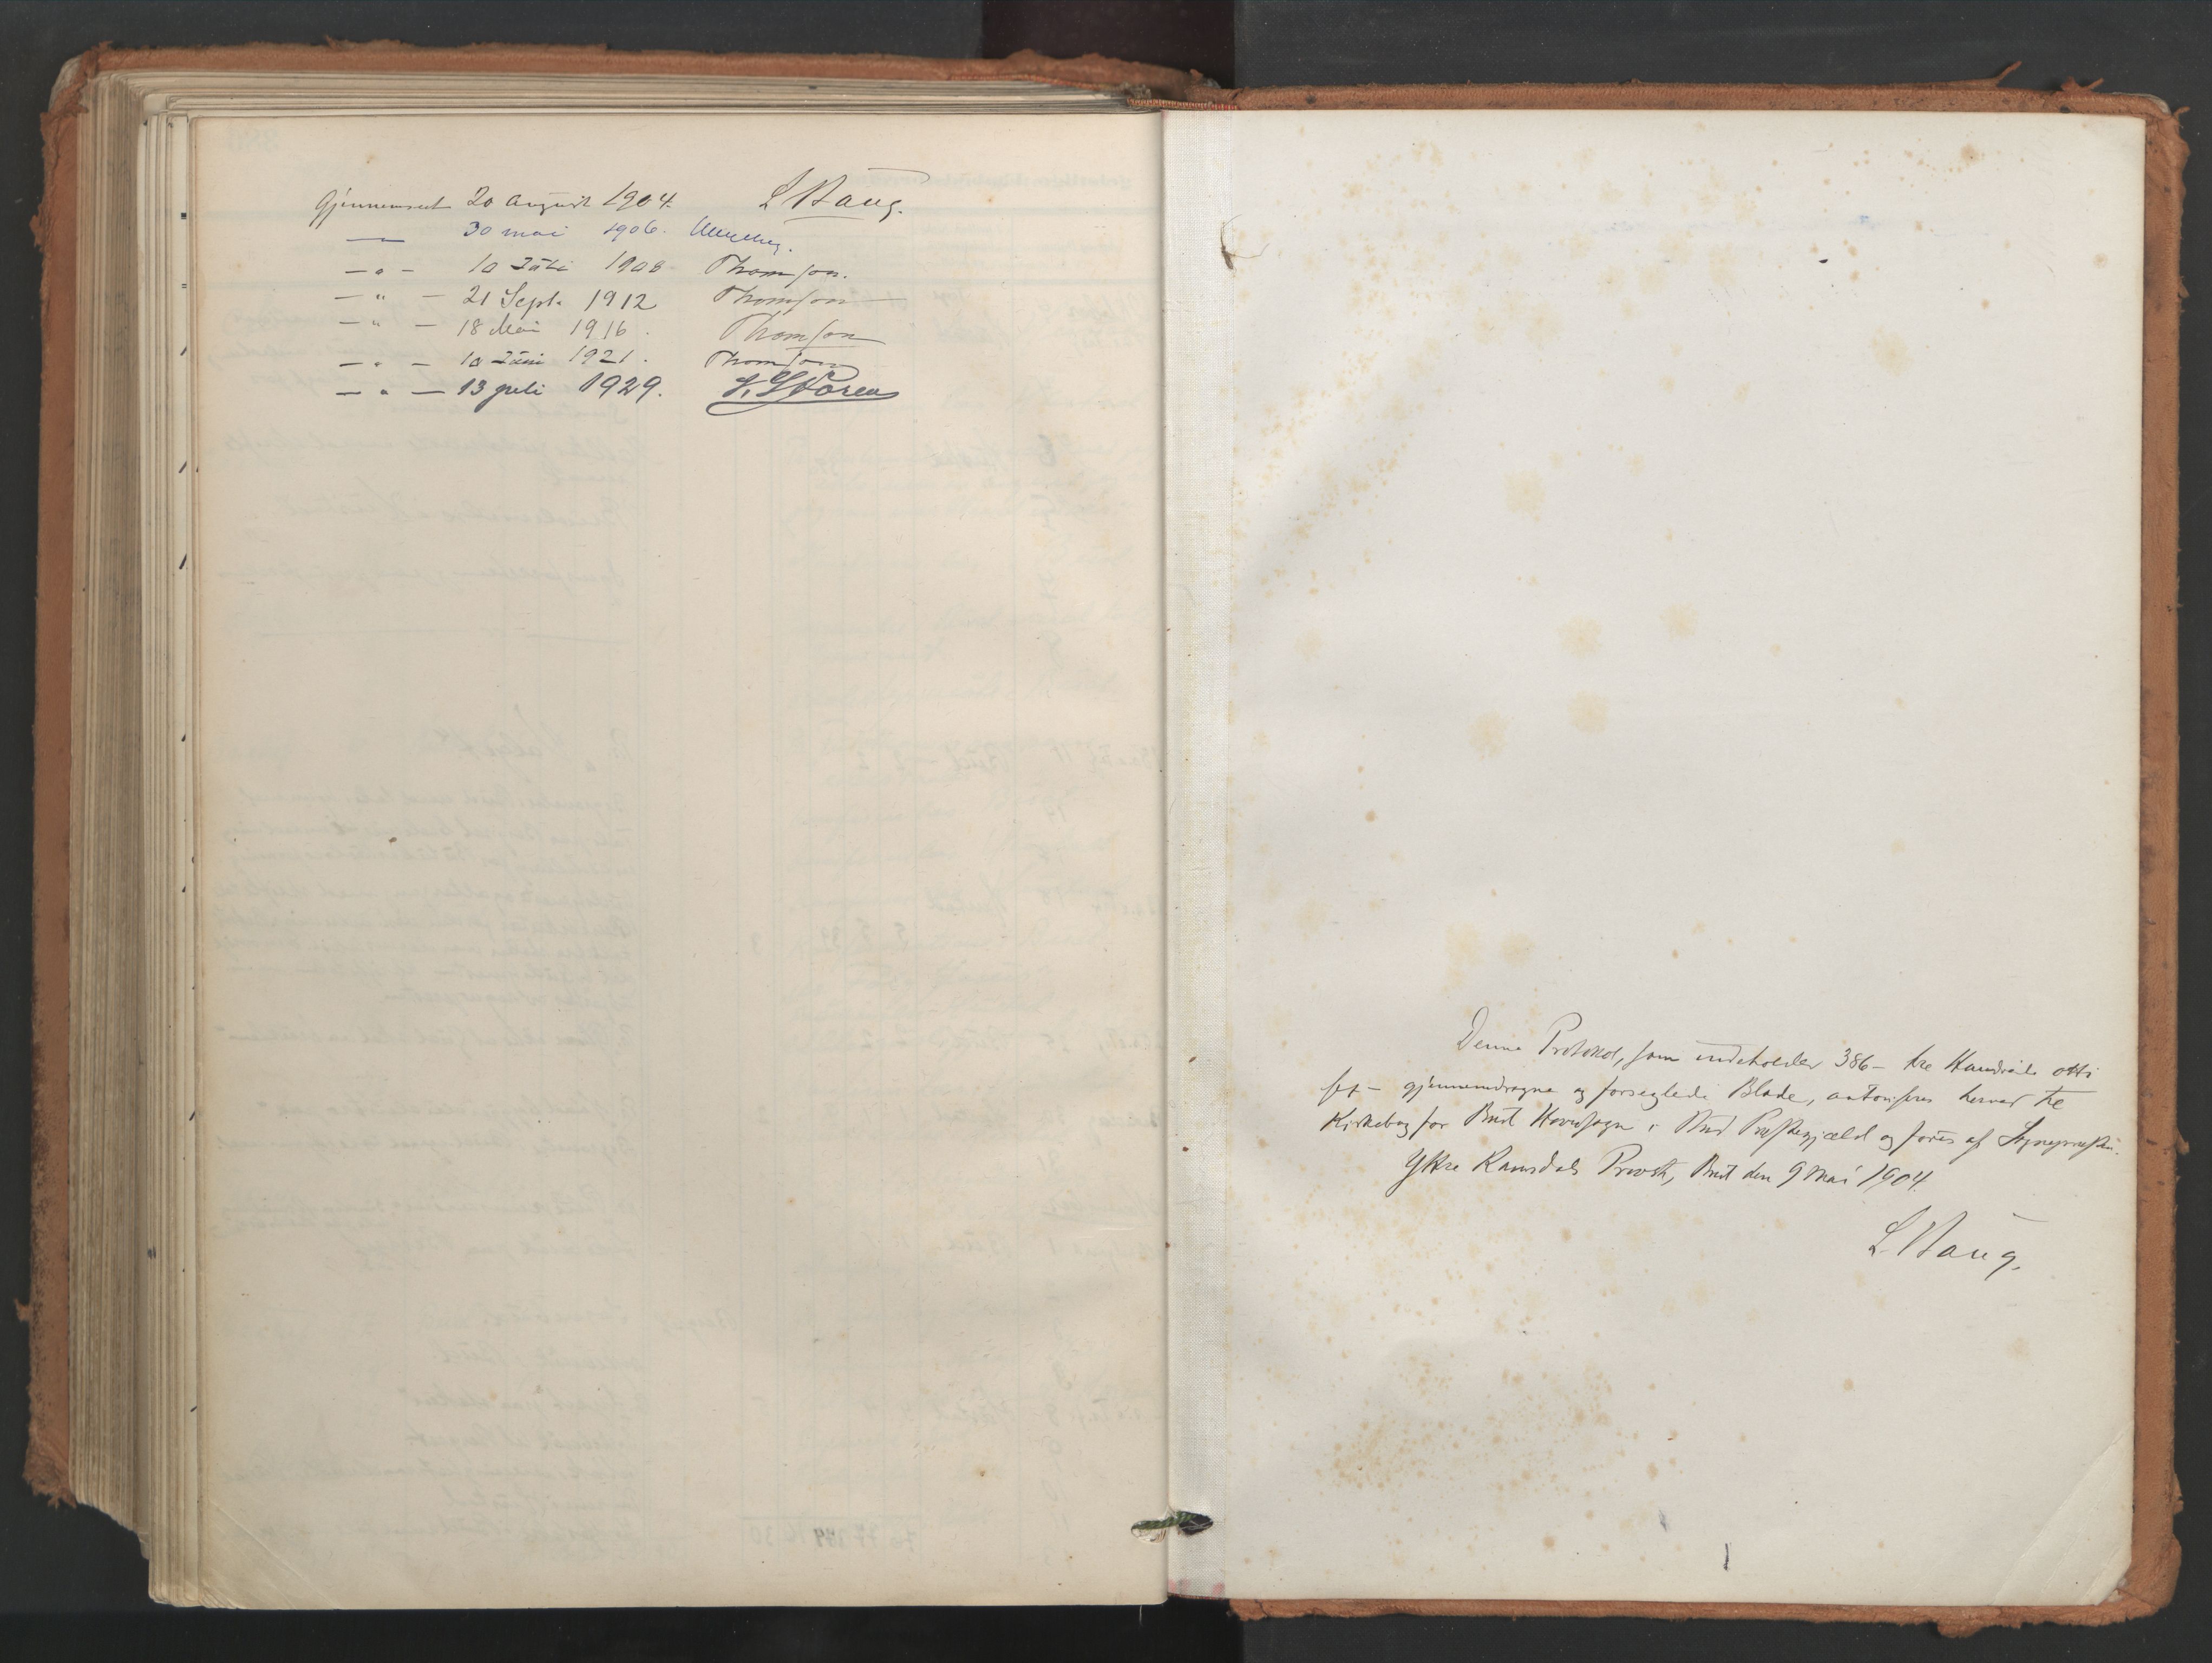 Gjennemseet 20 august 1904. L Haug.
— 30 mai 1906.
— " — 10 Juli 1908 Thomson.
— " — 21 Sept. 1912 Thomson
— " — 18 Mai 1916. Thomson
— " — 10 Juni 1921. Thomson
— " — 13 juli 1929.
Denne Protokol, som indeholder 386 – tre Hundrede otti
sex – gjennemdragne og forseglede Blade, autoriseres herved til
Kirkebog for Bud Hovedsogn i Bud Præstegjæld og føres af Sognepresten.
Ytre Romsdals Provsti, Bud den 9 Mai 1904.
L. Haug.